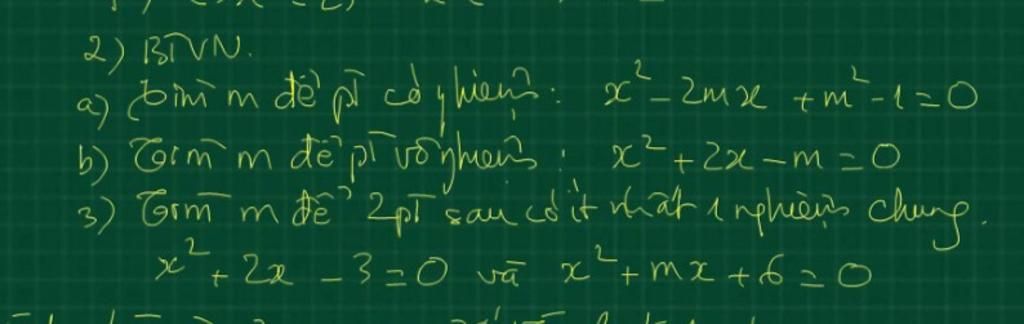 2) BTVN.
a) Tìm m để pt có nghiệm: x² - 2mx + m² - 1 = 0
b) Tìm m để pt vô nghiệm: x² + 2x - m = 0
3) Tìm m để 2pt sau có ít nhất 1 nghiệm chung.
x² + 2x - 3 = 0 và x² + mx + 6 = 0